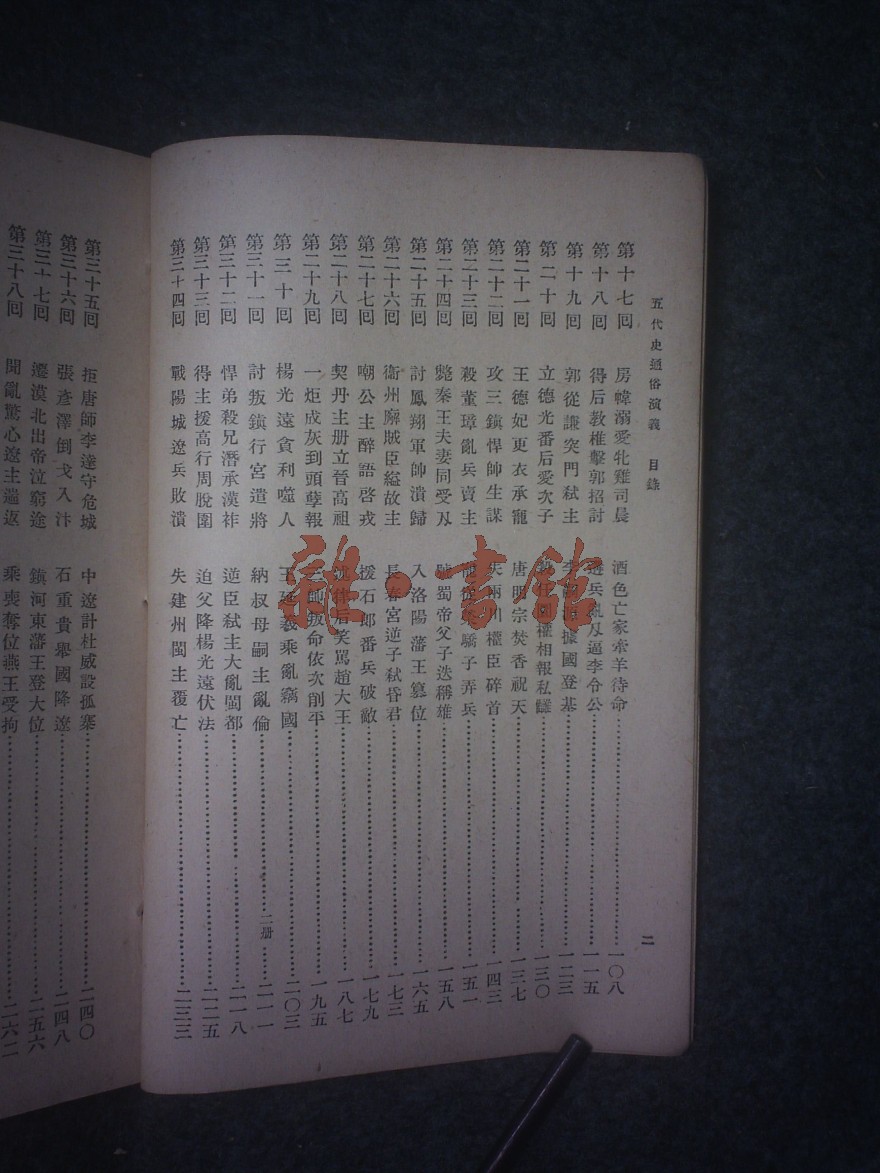 五代史通俗演義　目錄
二
第十七回　房幃溺愛牝雞司晨　酒色亡家牽羊待命……一〇八
第十八回　得后教椎擊郭招討　兵亂入逼李令公……一一五
第十九回　郭從謙突門弒主　據國登基……一二三
第二十回　立德光番后愛次子　權相報私讎……一三〇
第二十一回　王德妃更衣承寵　唐明宗焚香祝天……一三七
第二十二回　攻三鎮悍帥生謀　失兩川權臣碎首……一四三
第二十三回　殺董璋亂兵賣主　驕子弄兵……一五一
第二十四回　斃秦王夫妻同受刃　蜀帝父子迭稱雄……一五八
第二十五回　討鳳翔軍帥潰歸　入洛陽藩王篡位……一六五
第二十六回　衞州廨賊臣縊故主　長春宮逆子弒昏君……一七三
第二十七回　嘲公主醉語啓戎　援石郎番兵破敵……一七九
第二十八回　契丹主册立晉高祖　后笑罵趙大王……一八七
第二十九回　一炬成灰到頭孽報　三帥叛命依次削平……一九五
第三十回　楊光遠貪利噬人　王延羲乘亂竊國……二〇三
第三十一回　討叛鎮行宮遣將　納叔母嗣主亂倫……二册……二一一
第三十二回　悍弟殺兄潛承漢祚　逆臣弒主大亂閩都……二一八
第三十三回　得主援高行周脫圍　迫父降楊光遠伏法……二二五
第三十四回　戰陽城遼兵敗潰　失建州閩主覆亡……二三三
第三十五回　拒唐師李達守危城　中遼計杜威設孤寨……二四〇
第三十六回　張彥澤倒戈入汴　石重貴舉國降遼……二四八
第三十七回　遷漠北出帝泣窮途　鎮河東藩王登大位……二五六
第三十八回　聞亂驚心遼主遄返　乘喪奪位燕王受拘……二六二
雜·書館